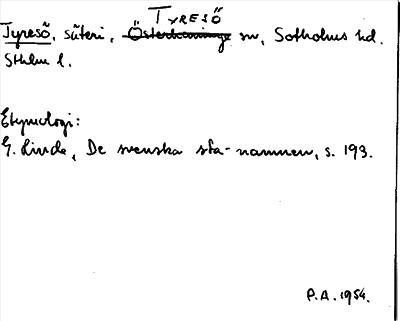 TYRESÖ
Tyresö, säteri, Österhaninge sn, Sotholms hd.
Sthlm l.
Etymologi:
G. Linde, De svenska sta-namnen, s. 193.
P.A. 1954.